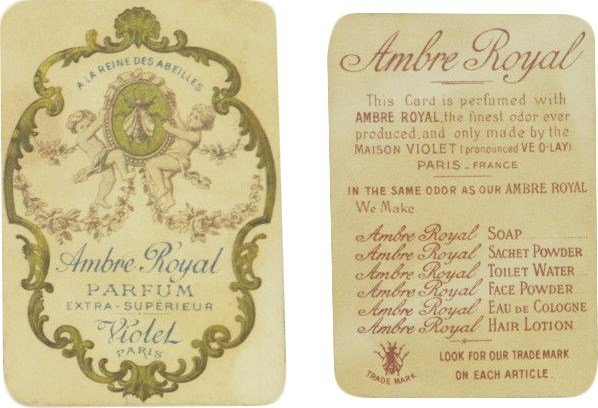 A LA REINE DES ABEILLES
Ambre Royal
PARFUM
EXTRA-SUPÉRIEUR
Violet
PARIS
Ambre Royal
This Card is perfumed with
AMBRE ROYAL, the finest odor ever
produced, and only made by the
MAISON VIOLET (pronounced VE-O-LAY)
PARIS - FRANCE
IN THE SAME ODOR AS OUR AMBRE ROYAL
We Make
Ambre Royal SOAP
Ambre Royal SACHET POWDER
Ambre Royal TOILET WATER
Ambre Royal FACE POWDER
Ambre Royal EAU DE COLOGNE
Ambre Royal HAIR LOTION
TRADE MARK
LOOK FOR OUR TRADE MARK
ON EACH ARTICLE.